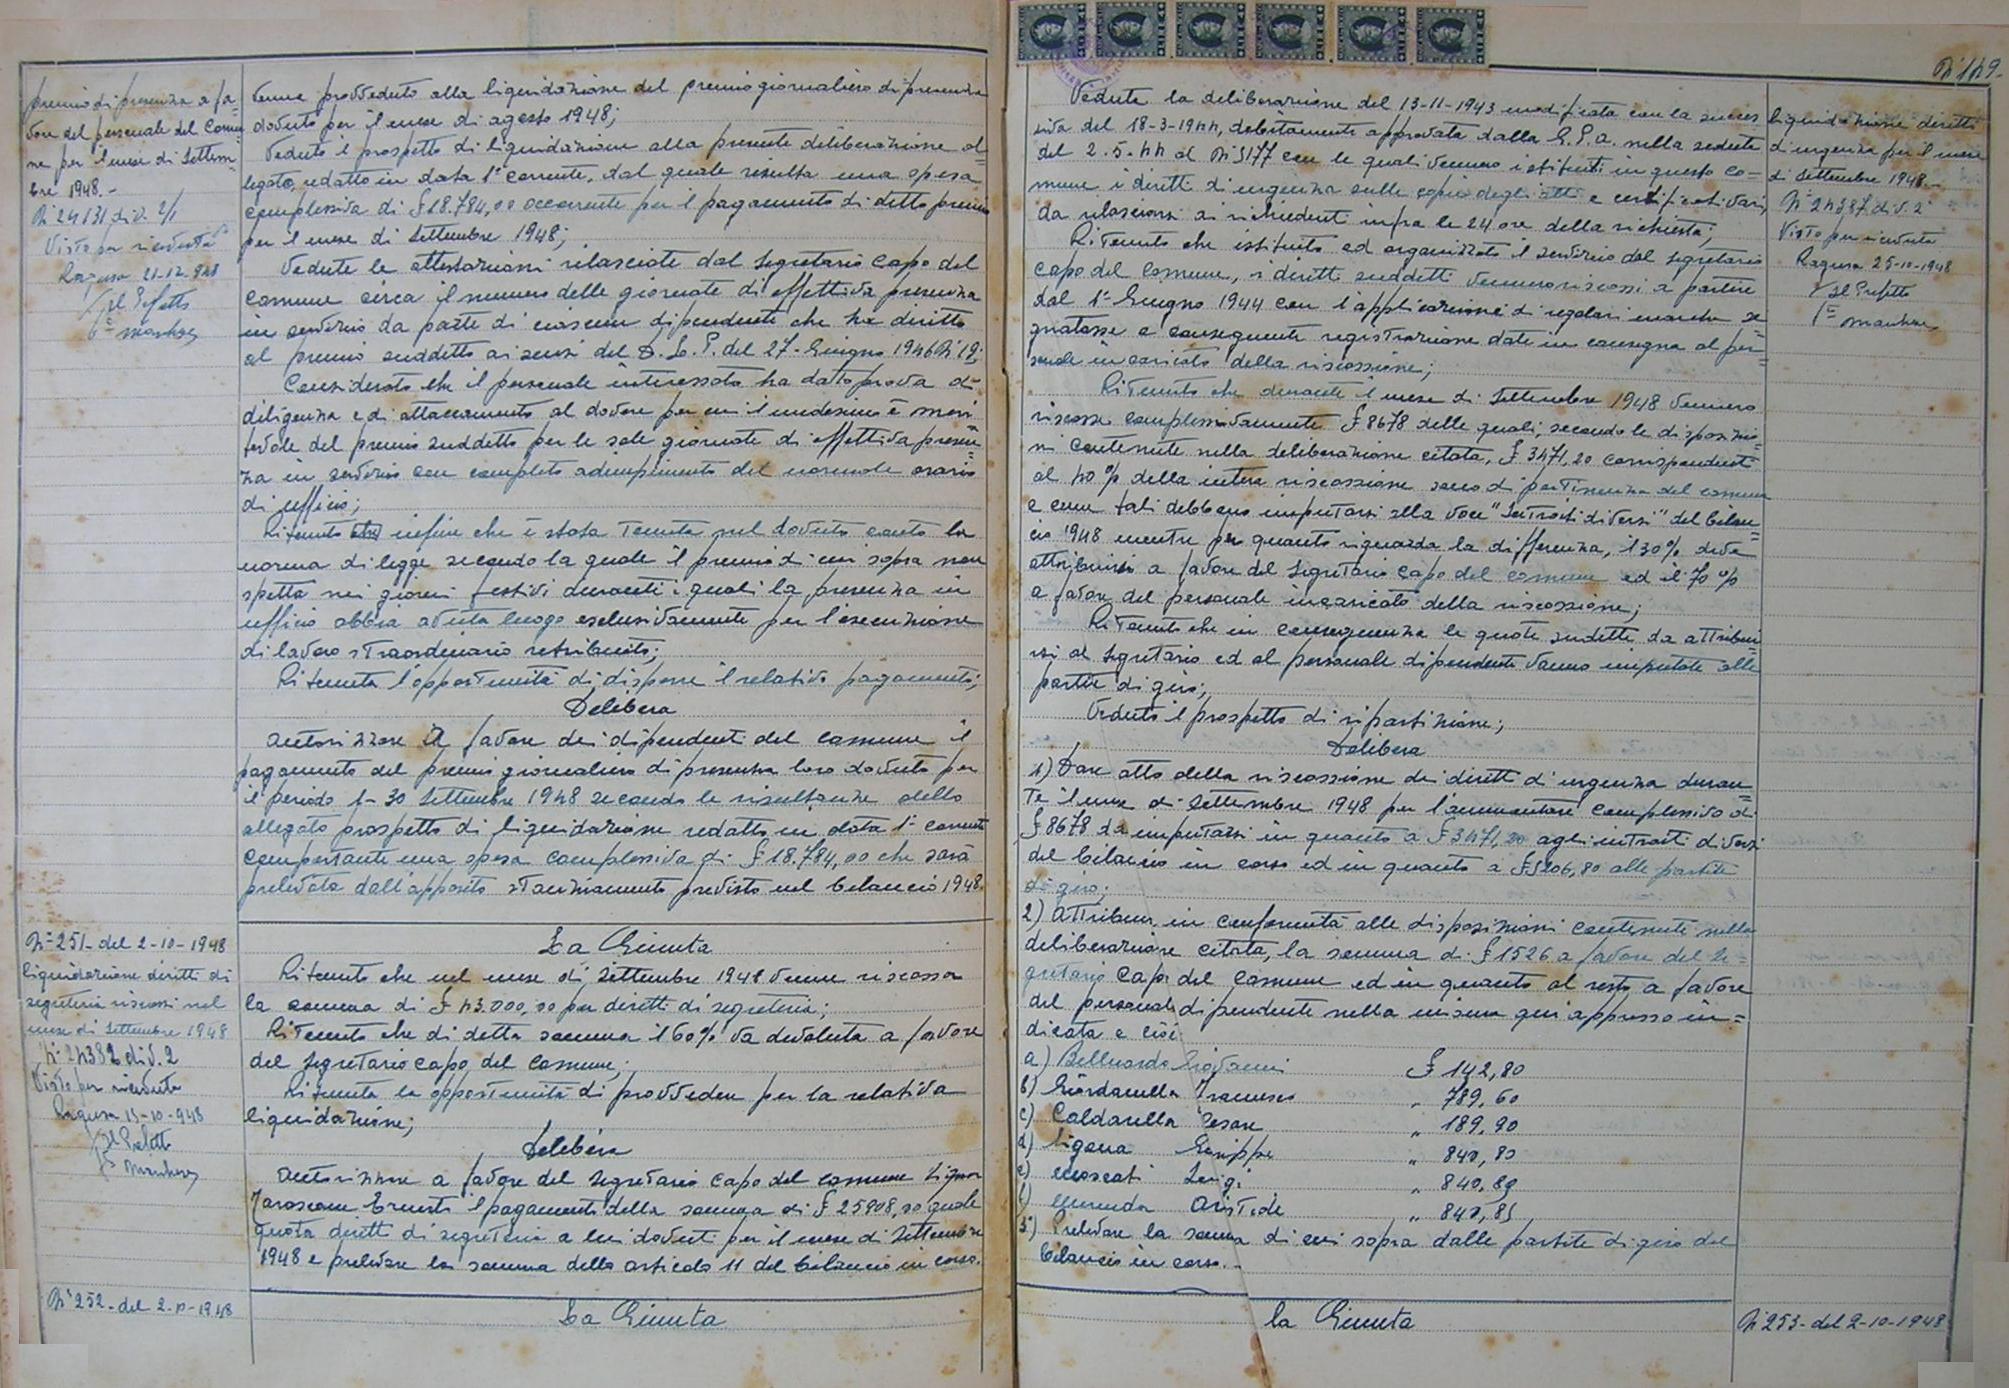 premio di presenza a fa=
vore del personale del Comu=
ne per l'mese di Settem=
bre 1948.-
N° 24131 div. 2/1
Visto per ricevuta
Ragusa 21-12-948
Il Prefetto
venne provveduto alla liquidazione del premio giornaliero di presenza
dovuto per il mese di agosto 1948;
Veduto l prospetto di liquidazione alla presente deliberazione al=
legato, redatto in data 1° corrente, dal quale risulta una spesa
complessiva di £ 18.784,00 occorrente per l pagamento di detto premio
per l mese di Settembre 1948;
Vedute le attestazioni rilasciate dal Segretario Capo del
Comune circa il numero delle giornate di effettiva presenza
in servizio da parte di ciascun dipendente che ha diritto
al premio suddetto ai sensi del D. L. P. del 27-Giugno 1946 N° 19;
Considerato che il personale interessato ha dato prova di
diligenza e di attaccamento al dovere per cui l medesimo è meri
tevole del premio suddetto per le sole giornate di effettiva presen=
za in servizio con completo adempimento del normale orario
di ufficio;
Ritenuto infine che è stata tenuta nel dovuto conto la
norma di legge secondo la quale il premio di cui sopra non
spetta nei giorni festivi durante i quali la presenza in
ufficio abbia avuta luogo esclusivamente per l'esecuzione
di lavoro straordinario retribuito;
Ritenuta l'opportunità di disporre l relativo pagamento;
Delibera
autorizzare a favore dei dipendenti del Comune il
pagamento del premio giornaliero di presenza loro dovuto per
il periodo 1-30 Settembre 1948 secondo le risultanze dello
allegato prospetto di liquidazione redatto in data 1° corrente
comportante una spesa complessiva di £ 18.784,00 che sarà
prelevata dall'apposito stanziamento previsto nel bilancio 1948.
N° 251- del 2-10-1948
liquidazione diritti di
segreteria riscossi nel
mese di Settembre 1948
N° 24382 div. 2
Visto per ricevuta
Ragusa 15-10-948
Il Prefetto
La Giunta
Ritenuto che nel mese di Settembre 1948 venne riscossa
la somma di £ 43.000,00 per diritti di segreteria;
Ritenuto che di detta somma il 60% va devoluta a favore
del Segretario Capo del Comune;
Ritenuta la opportunità di provvedere per la relativa
liquidazione;
Delibera
autorizzare a favore del Segretario Capo del Comune Signor
Ernesto l pagamento della somma di £ 25908,00 quale
quota diritti di segreteria a lui dovuti per il mese di Settembre
1948 e prelevare la somma dello articolo 11 del bilancio in corso.
N° 252- del 2-10-1948
La Giunta
N° 149.
Vedute la deliberazione del 13-11-1943 modificata con la succes
siva del 18-3-1944, debitamente approvata dalla G. P. A. nella seduta
del 2.5.44 al N° 5177 con le quali vennero istituiti in questo Co=
mune i diritti di urgenza sulle copie degli atti e certificati vari,
da rilasciarsi ai richiedenti infra le 24 ore della richiesta;
Ritenuto che istituito ed organizzato il servizio dal Segretario
Capo del Comune, i diritti suddetti vennero riscossi a partire
dal 1° Giugno 1944 con l'applicazione di regolari marche se
gnatasse e conseguente registrazione date in consegna al per=
sonale incaricato della riscossione;
Ritenuto che durante l mese di Settembre 1948 vennero
riscosse complessivamente £ 8678 delle quali, secondo le disposizio=
ni contenute nella deliberazione citata, £ 3471,20 corrispondenti
al 40% della intera riscossione sono di pertinenza del Comune
e come tali debbono imputarsi alla voce "Introiti diversi" del bilan=
cio 1948 mentre per quanto riguarda la differenza, il 30% deve
attribuirsi a favore del Segretario Capo del Comune ed il 70%
a favore del personale incaricato della riscossione;
Ritenuto che in conseguenza le quote suddette da attribuir
si al Segretario ed al personale dipendente vanno imputate alle
partite di giro;
Veduto il prospetto di ripartizione;
Delibera
1) Dare atto della riscossione dei diritti di urgenza duran=
te l mese di Settembre 1948 per l'ammontare complessivo di
£ 8678 da imputarsi in quanto a £ 3471,20 agli introiti diversi
del bilancio in corso ed in quanto a £ 5206,80 alle partite
di giro;
2) Attribuire in conformità alle disposizioni contenute nella
deliberazione citata, la somma di £ 1526 a favore del Se=
gretario Capo del Comune ed in quanto al resto a favore
del personale dipendente nella misura qui appresso in=
dicata e cioè
a) Belluardo Giovanni £ 142,80
b) Giordanella Francesco " 789,60
c) Caldarella Cesare " 189,90
d) Ligama Giuseppe " 840,80
e) Moscati Luigi " 840,89
f) Aristide " 840,85
3°) Prelevare la somma di cui sopra dalle partite di giro del
bilancio in corso.-
La Giunta
liquidazione diritti
d'urgenza per il mese
di Settembre 1948.-
N° 24387 div. 2
Visto per ricevuta
Ragusa 25-10-1948
Il Prefetto
N° 253- del 2-10-1948